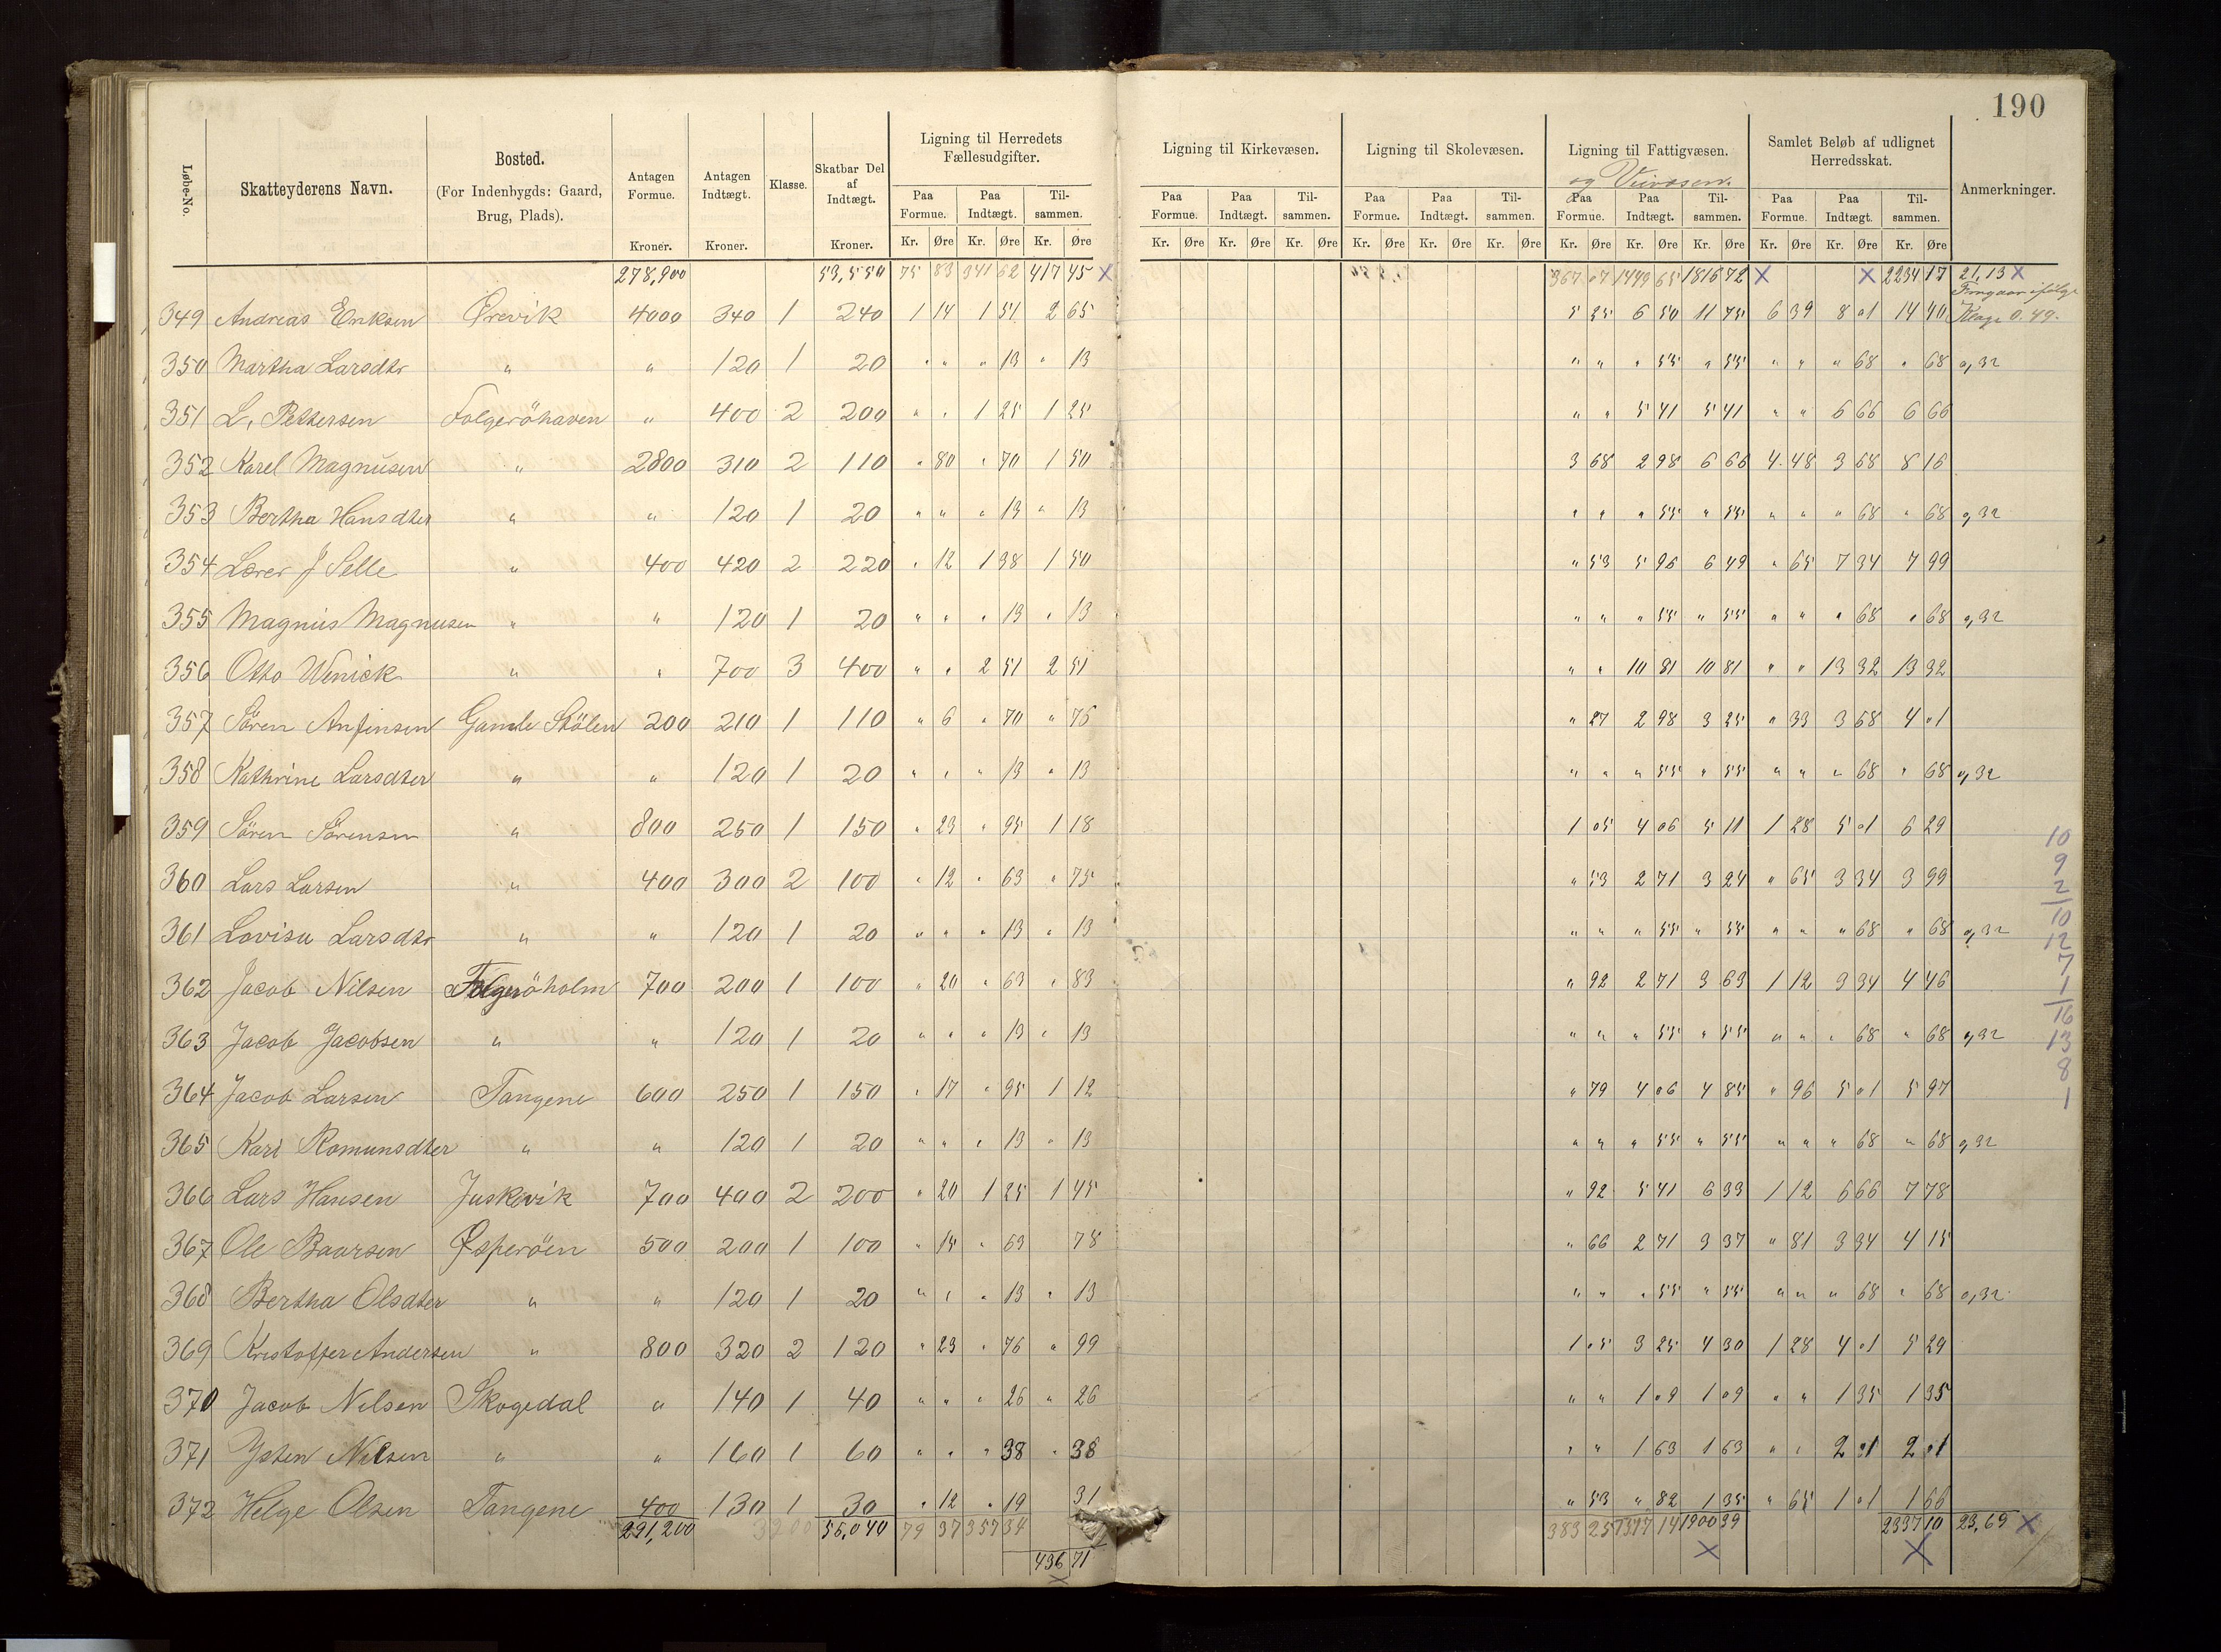 190
Løbe-No.
Skatteyderens Navn.
Bosted.
(For Indenbygds: Gaard,
Brug, Plads).
Antagen
Formue.
Kroner.
Antagen
Indtægt.
Kroner.
Klasse.
Skatbar Del
af
Indtægt.
Kroner.
Ligning til Herredets
Fællesudgifter.
Ligning til Kirkevæsen.
Ligning til Skolevæsen.
Ligning til Fattigvæsen.
og Veivæsen.
Samlet Beløb af udlignet
Herredsskat.
Anmerkninger.
Paa Formue. Paa Indtægt. Til-sammen. Paa Formue. Paa Indtægt. Til-sammen. Paa Formue. Paa Indtægt. Til-sammen. Paa Formue. Paa Indtægt. Til-sammen. Paa Formue. Paa Indtægt. Til-sammen.
Kr. Øre Kr. Øre Kr. Øre Kr. Øre Kr. Øre Kr. Øre Kr. Øre Kr. Øre Kr. Øre Kr. Øre Kr. Øre Kr. Øre Kr. Øre Kr. Øre Kr. Øre
278,900 53,550 75 83 341 62 417 45 X 367 07 1449 65 1816 72 X X 2234 17 21,13 X
349 Andreas Eriksen Örevik 4000 340 1 240 1 14 1 51 2 65 5 25 6 50 11 75 6 39 8 01 14 40 Klage 0.49.
350 Martha Larsdtr " " 120 1 20 " " " 13 " 13 " " " 55 " 55 " " " 68 " 68 0,32
351 L. Pettersen Folgeröhaven " 400 2 200 " " 1 25 1 25 " " 5 41 5 41 " " 6 66 6 66
352 Karel Magnusen " 2800 310 2 110 " 80 " 70 1 50 3 68 2 98 6 66 4 48 3 68 8 16
353 Bertha Hansdter " " 120 1 20 " " " 13 " 13 " " " 55 " 55 " " " 68 " 68 0,32
354 Lærer J Selle " 400 420 2 220 " 12 1 38 1 50 " 53 5 96 6 49 " 65 7 34 7 99
355 Magnus Magnusen " " 120 1 20 " " " 13 " 13 " " " 55 " 55 " " " 68 " 68 0,32
356 Otto Winick " " 700 3 400 " " 2 51 2 51 " " 10 81 10 81 " " 13 32 13 32
357 Sören Anfinsen Gamle Skölen 200 210 1 110 " 6 " 70 " 76 " 27 2 98 3 25 " 33 3 68 4 01
358 Kathrine Larsdter " " 120 1 20 " " " 13 " 13 " " " 55 " 55 " " " 68 " 68 0,32
359 Sören Sörensen " 800 250 1 150 " 23 " 95 1 18 1 05 4 06 5 11 1 28 5 01 6 29
360 Lars Larsen " 400 300 2 100 " 12 " 63 " 75 " 53 2 71 3 24 " 65 3 34 3 99
361 Lovisa Larsdtr " " 120 1 20 " " " 13 " 13 " " " 55 " 55 " " " 68 " 68 0,32
362 Jacob Nilsen Folgeröholm 700 200 1 100 " 20 " 63 " 83 " 92 2 71 3 63 1 12 3 34 4 46
363 Jacob Jacobsen " " 120 1 20 " " " 13 " 13 " " " 55 " 55 " " " 68 " 68 0,32
364 Jacob Larsen Tangene 600 250 1 150 " 17 " 95 1 12 " 79 4 06 4 85 " 96 5 01 5 97
365 Kari Romunsdter " " 120 1 20 " " " 13 " 13 " " " 55 " 55 " " " 68 " 68 0,32
366 Lars Hansen Juskevik 700 400 2 200 " 20 1 25 1 45 " 92 5 41 6 33 1 12 6 66 7 78
367 Ole Baarsen Øsperöen 500 200 1 100 " 15 " 63 78 " 66 2 71 3 37 " 81 3 34 4 15
368 Bertha Olsdter " " 120 1 20 " " " 13 " 13 " " " 55 " 55 " " " 68 " 68 0,32
369 Kristoffer Andersen " 800 320 2 120 " 23 " 76 " 99 1 05 3 25 4 30 1 28 4 01 5 29
370 Jacob Nilsen Skogedal " 140 1 40 " " " 26 " 26 " " 1 09 1 09 " " 1 35 1 35
371 Ysten Nilsen " " 160 1 60 " " " 38 " 38 " " 1 63 1 63 " " 2 01 2 01
372 Helge Olsen Tangene 400 130 1 30 " 12 " 19 31 " 53 " 82 1 35 " 65 1 01 1 66
291,200 56,040 79 37 357 34 383 25 1517 14 1900 39 2337 10 23,69 X
436 71
X X X
10
9
2
10
12
7
1
16
13
8
1